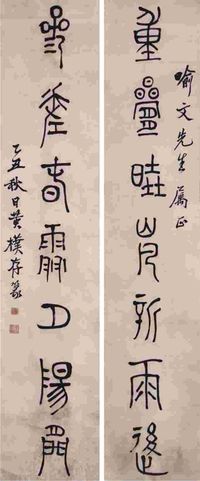 喻文先生屬正
重疊新雨後
參差春夕陽
乙丑秋日黃樸存篆